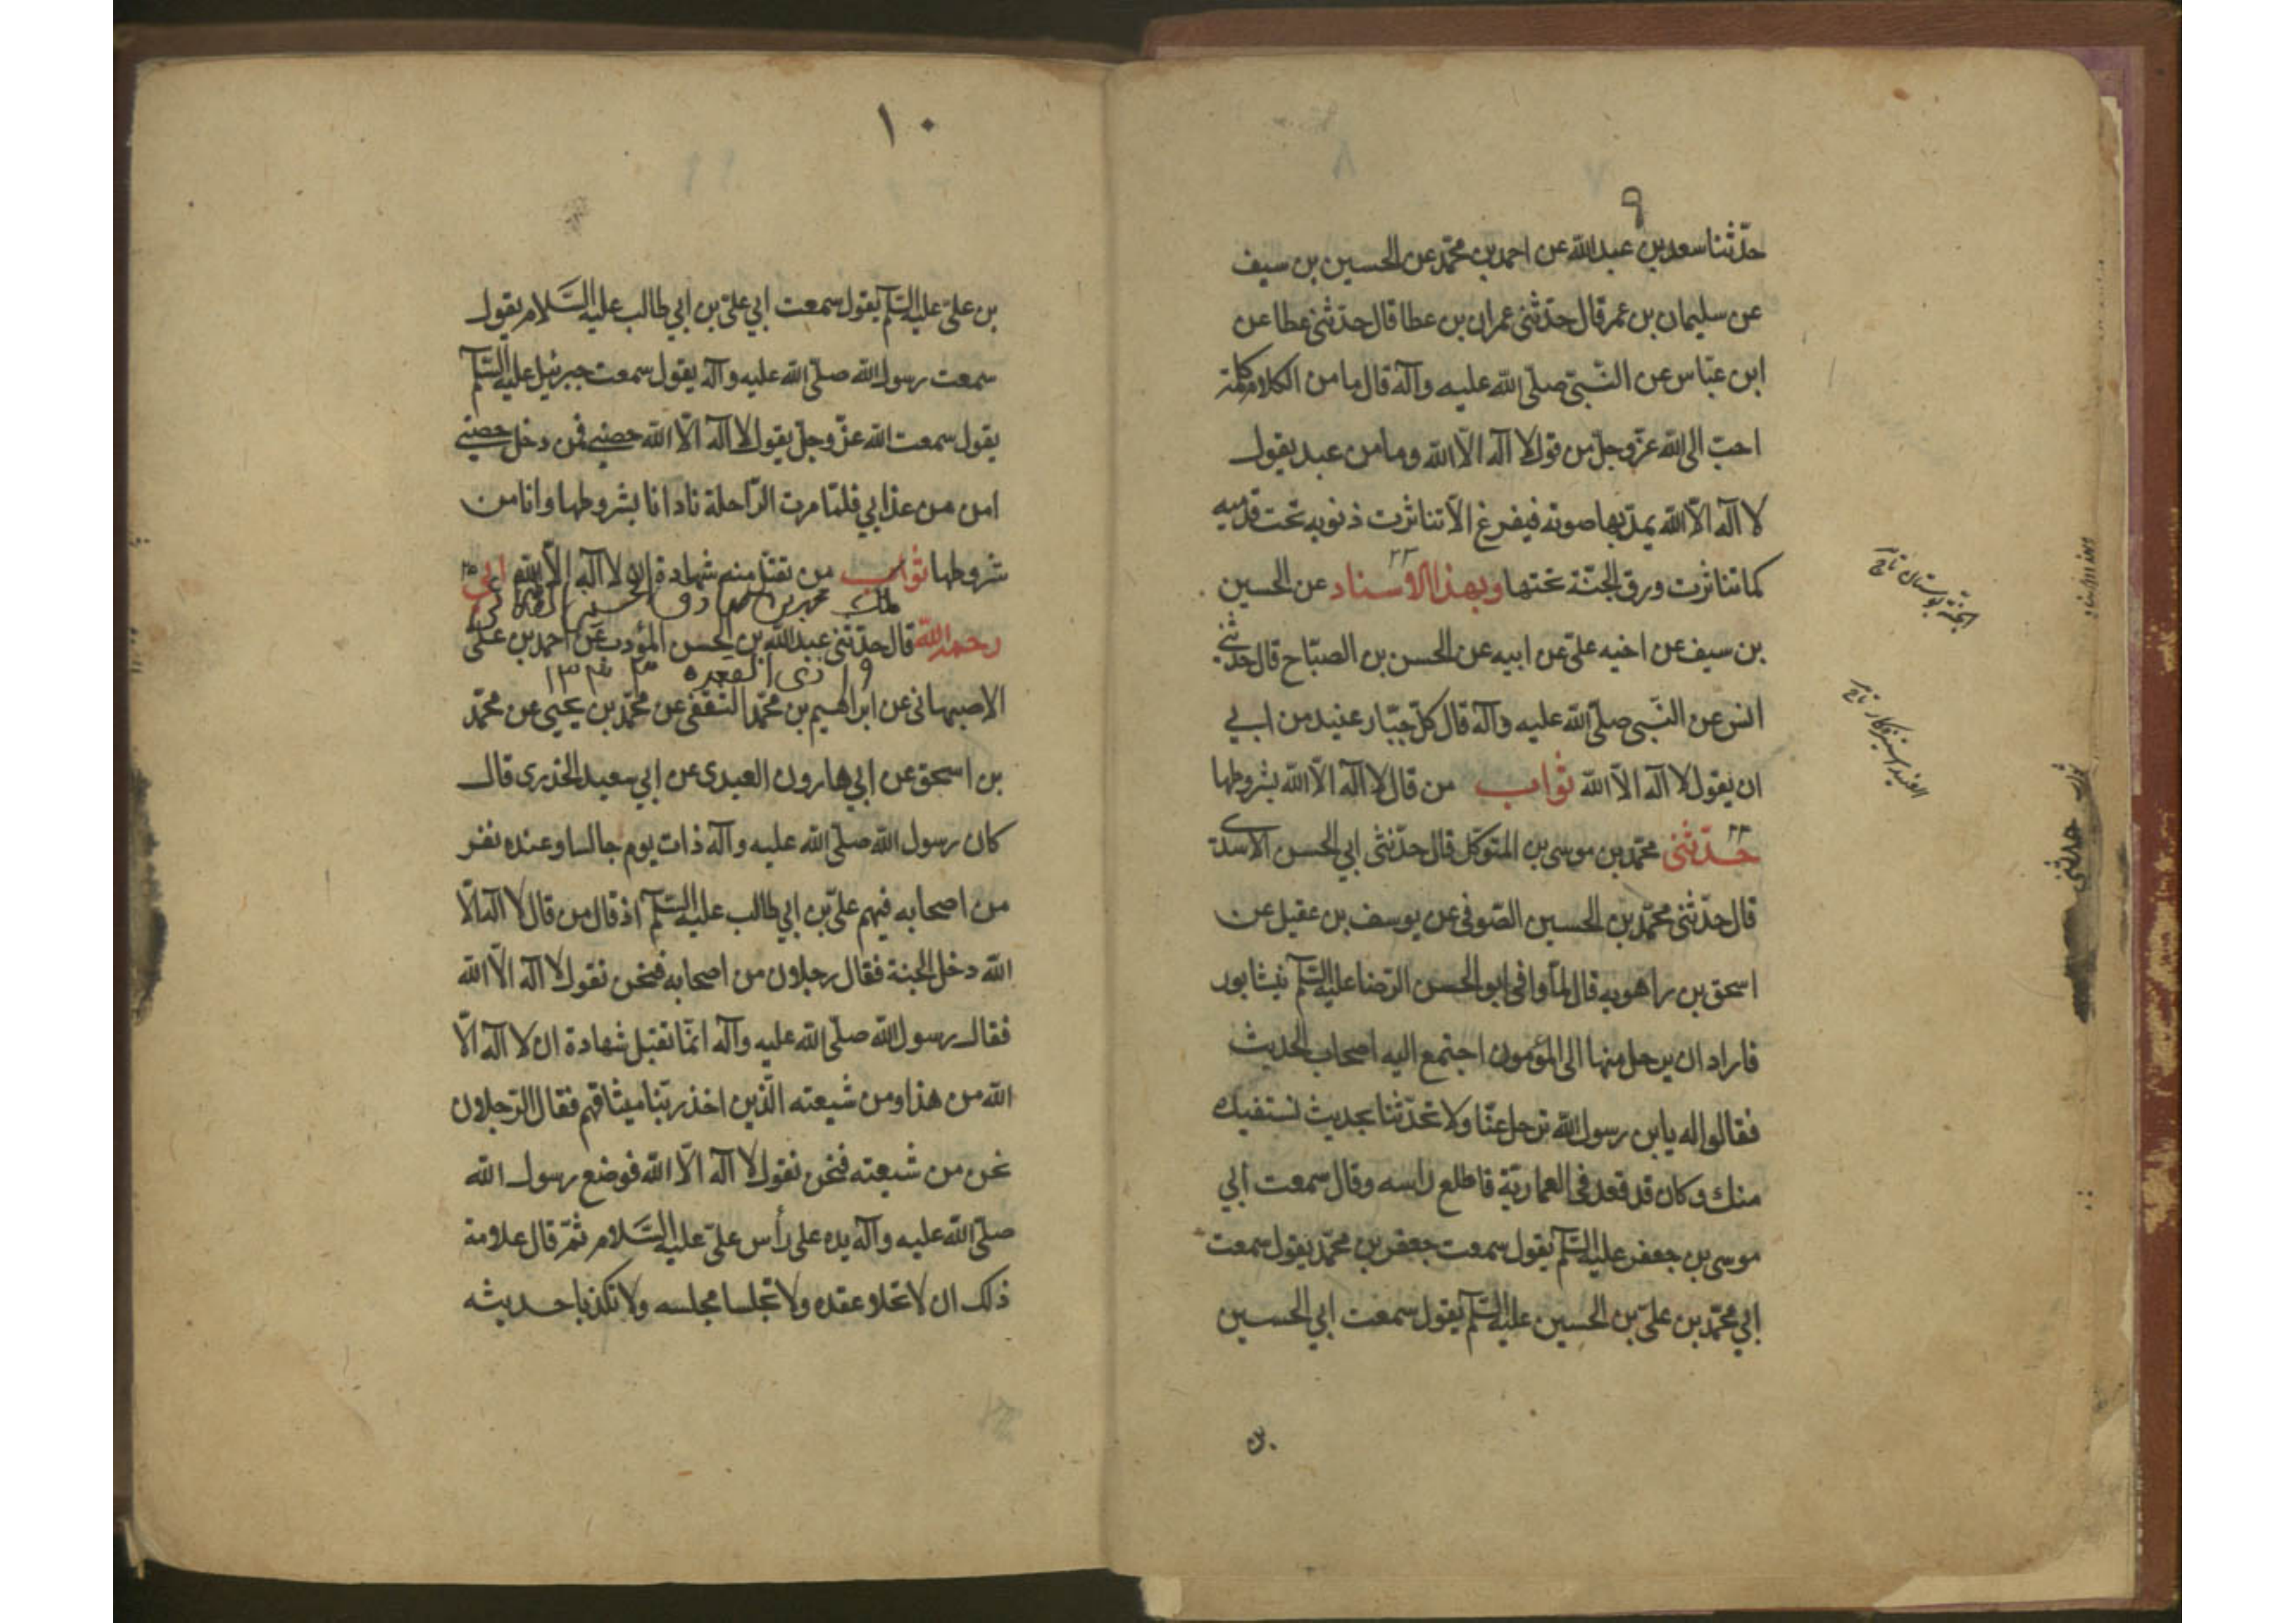 ٩
حدّثنا سعد بن عبد الله عن احمد بن محمّد عن الحسين بن سيف
عن سليمان بن عمر قال حدّثنى عمران بن عطا قال حدّثنى عطا عن
ابن عبّاس عن النّبىّ صلّى الله عليه وآله قال ما من الكلام كلمة
احبّ الى الله عزّ وجلّ من قول لا اله الّا الله وما من عبد يقول
لا اله الّا الله يمدّ بها صوته فيفرغ الّا تناثرت ذنوبه تحت قدميه
كما تناثرت ورق الجنّة تحتها وبهذا الاسناد عن الحسين
بن سيف عن اخيه علىّ عن ابيه عن الحسن بن الصبّاح قال حدّثنى
انس عن النّبى صلّى الله عليه وآله قال كلّ جبّار عنيد من ابي
ان يقول لا اله الّا الله ثواب من قال لا اله الّا الله بشروطها
حدّثنى محمّد بن موسى بن المتوكّل قال حدّثنى ابي الحسن الاسدى
قال حدّثنى محمّد بن الحسين الصّوفى عن يوسف بن عقيل عن
اسحق بن راهويه قال لمّا وافى ابو الحسن الرّضا عليه السّلم نيشابور
فاراد ان يرحل منها الى المؤمون اجتمع اليه اصحاب الحديث
فقالوا له يا بن رسول الله ترحل عنّا ولا تحدّثنا بحديث نستفيده
منك وكان قد قعد فى العماريّة فاطلع راسه وقال سمعت ابي
موسى بن جعفر عليه السّلم يقول سمعت جعفر بن محمّد يقول سمعت
ابي محمّد بن علىّ بن الحسين عليه السّلم يقول سمعت ابي الحسين
حدثنى
١٠
بن علىّ عليه السّلم يقول سمعت ابي علىّ بن ابي طالب عليه السّلام يقول
سمعت رسول الله صلّى الله عليه وآله يقول سمعت جبرئيل عليه السّلم
يقول سمعت الله عزّ وجلّ يقول لا اله الّا الله حصنى فمن دخل حصنى
امن من عذابي فلمّا مرت الرّاحلة نادانا بشروطها وانا من
شروطها ثواب من تقبل منه شهادة ان لا اله الّا الله ابى
رحمه الله قال حدّثنى عبد الله بن الحسن المؤدب عن احمد بن علىّ
الاصبهانى عن ابراهيم بن محمّد الثقفى عن محمّد بن يحيى عن محمّد
بن اسحق عن ابي هارون العبدى عن ابي سعيد الخدرى قال
كان رسول الله صلّى الله عليه وآله ذات يوم جالسا وعنده نفر
من اصحابه فيهم علىّ بن ابي طالب عليه السّلم اذ قال من قال لا اله الّا
الله دخل الجنة فقال رجلان من اصحابه فنحن نقول لا اله الّا الله
فقال رسول الله صلّى الله عليه وآله انمّا تقبل شهادة ان لا اله الّا
الله من هذا ومن شيعته الّذين اخذ ربّنا ميثاقهم فقال الرّجلان
نحن من شيعته فنحن نقول لا اله الّا الله فوضع رسول الله
صلّى الله عليه وآله يده على رأس علىّ عليه السّلام ثمّ قال علامة
ذلك ان لا تحلا عقده ولا تجلسا مجلسه ولا تكذبا حديثه